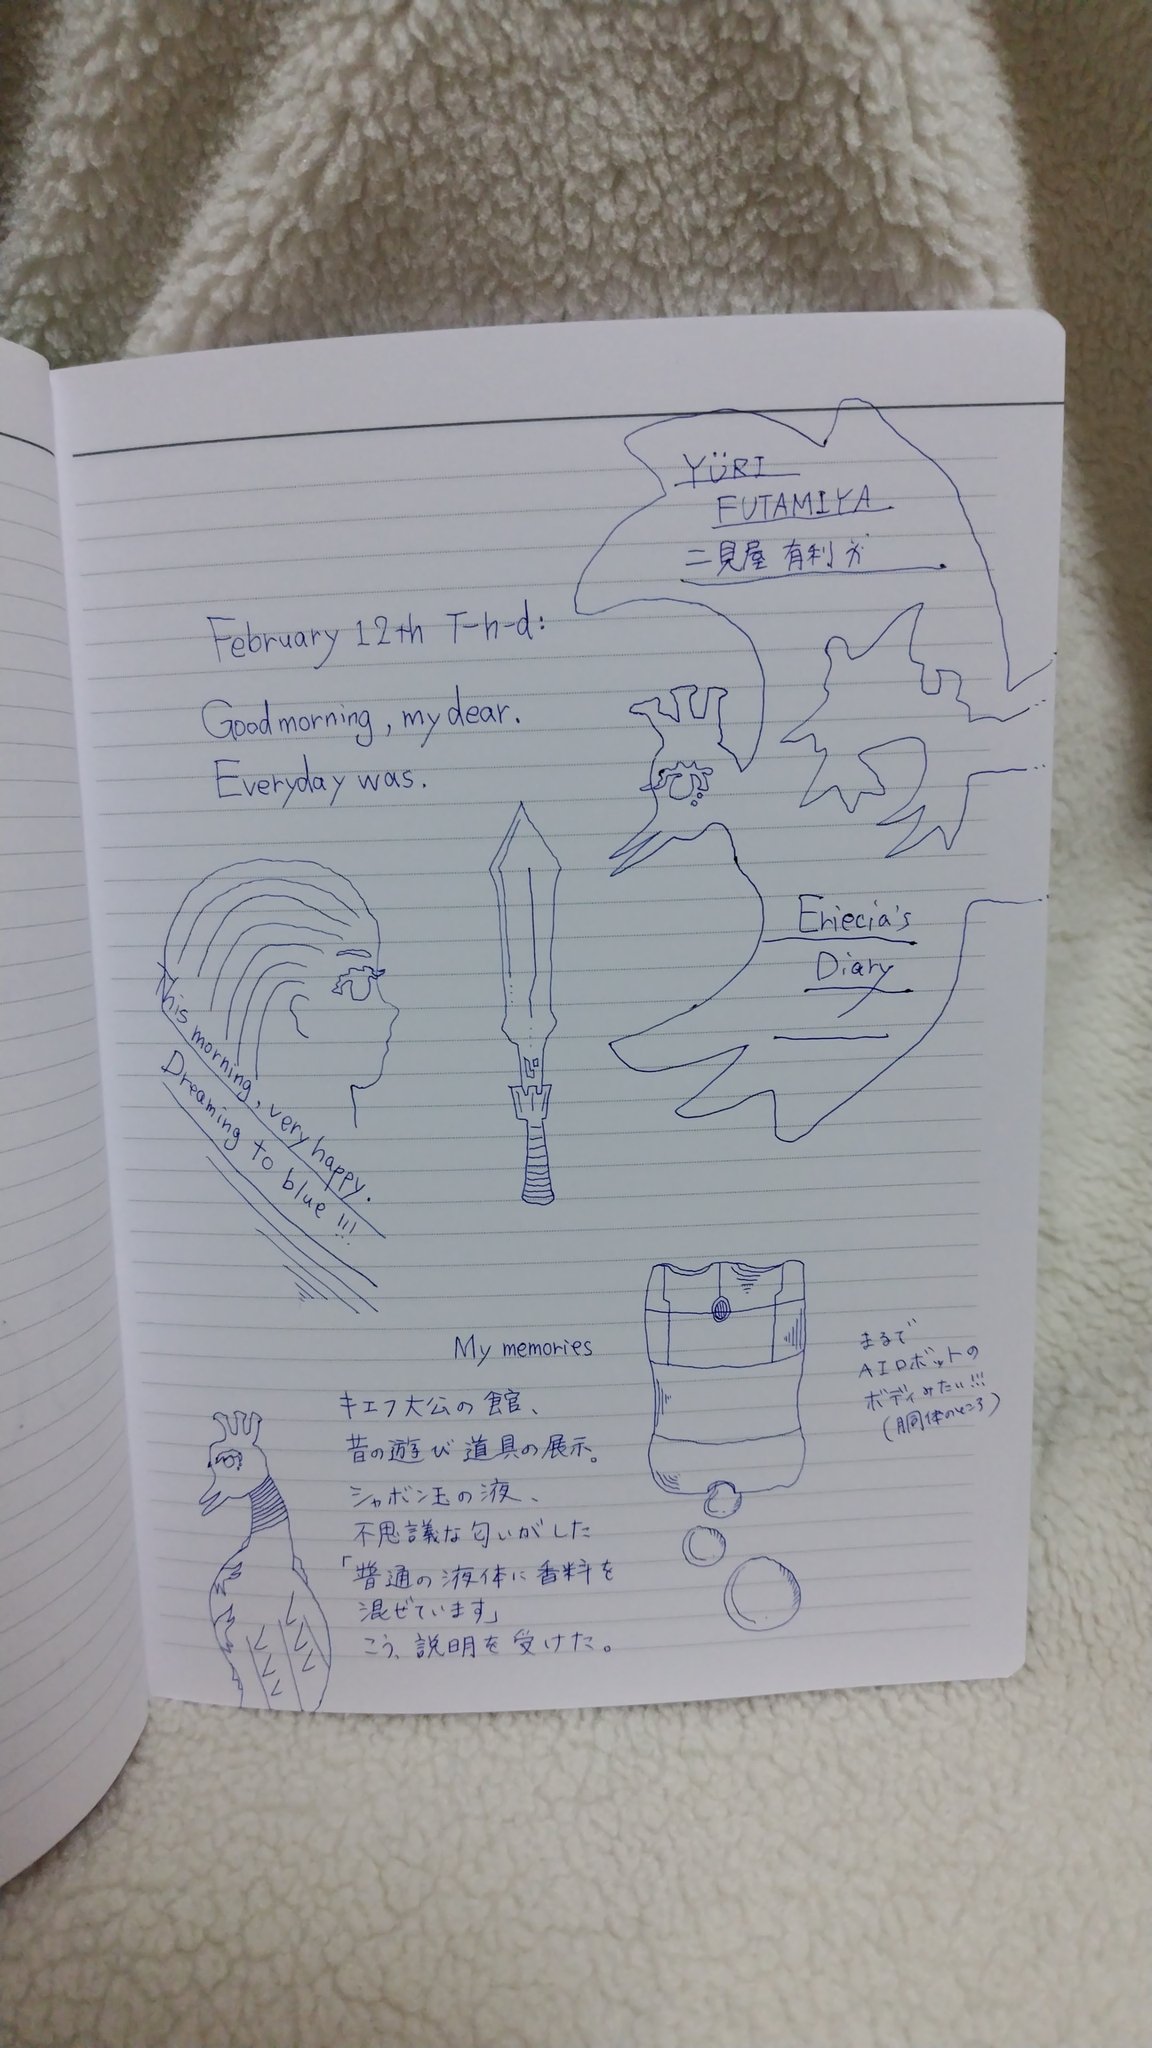 YÜRI
FUTAMIYA
二見屋 有利
February 12th T-h-d:
Good morning, my dear.
Everyday was.
Eriecia's
Diary
This morning, very happy.
Dreaming to blue!!!
My memories
キエフ大公の館、
昔の遊び道具の展示。
シャボン玉の液、
不思議な匂いがした
「普通の液体に香料を
混ぜています」
こう、説明を受けた。
まるで
AIロボットの
ボディみたい!!!
(胴体のところ)